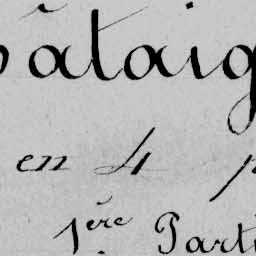 âtaig
en 4 p
1ère Parti